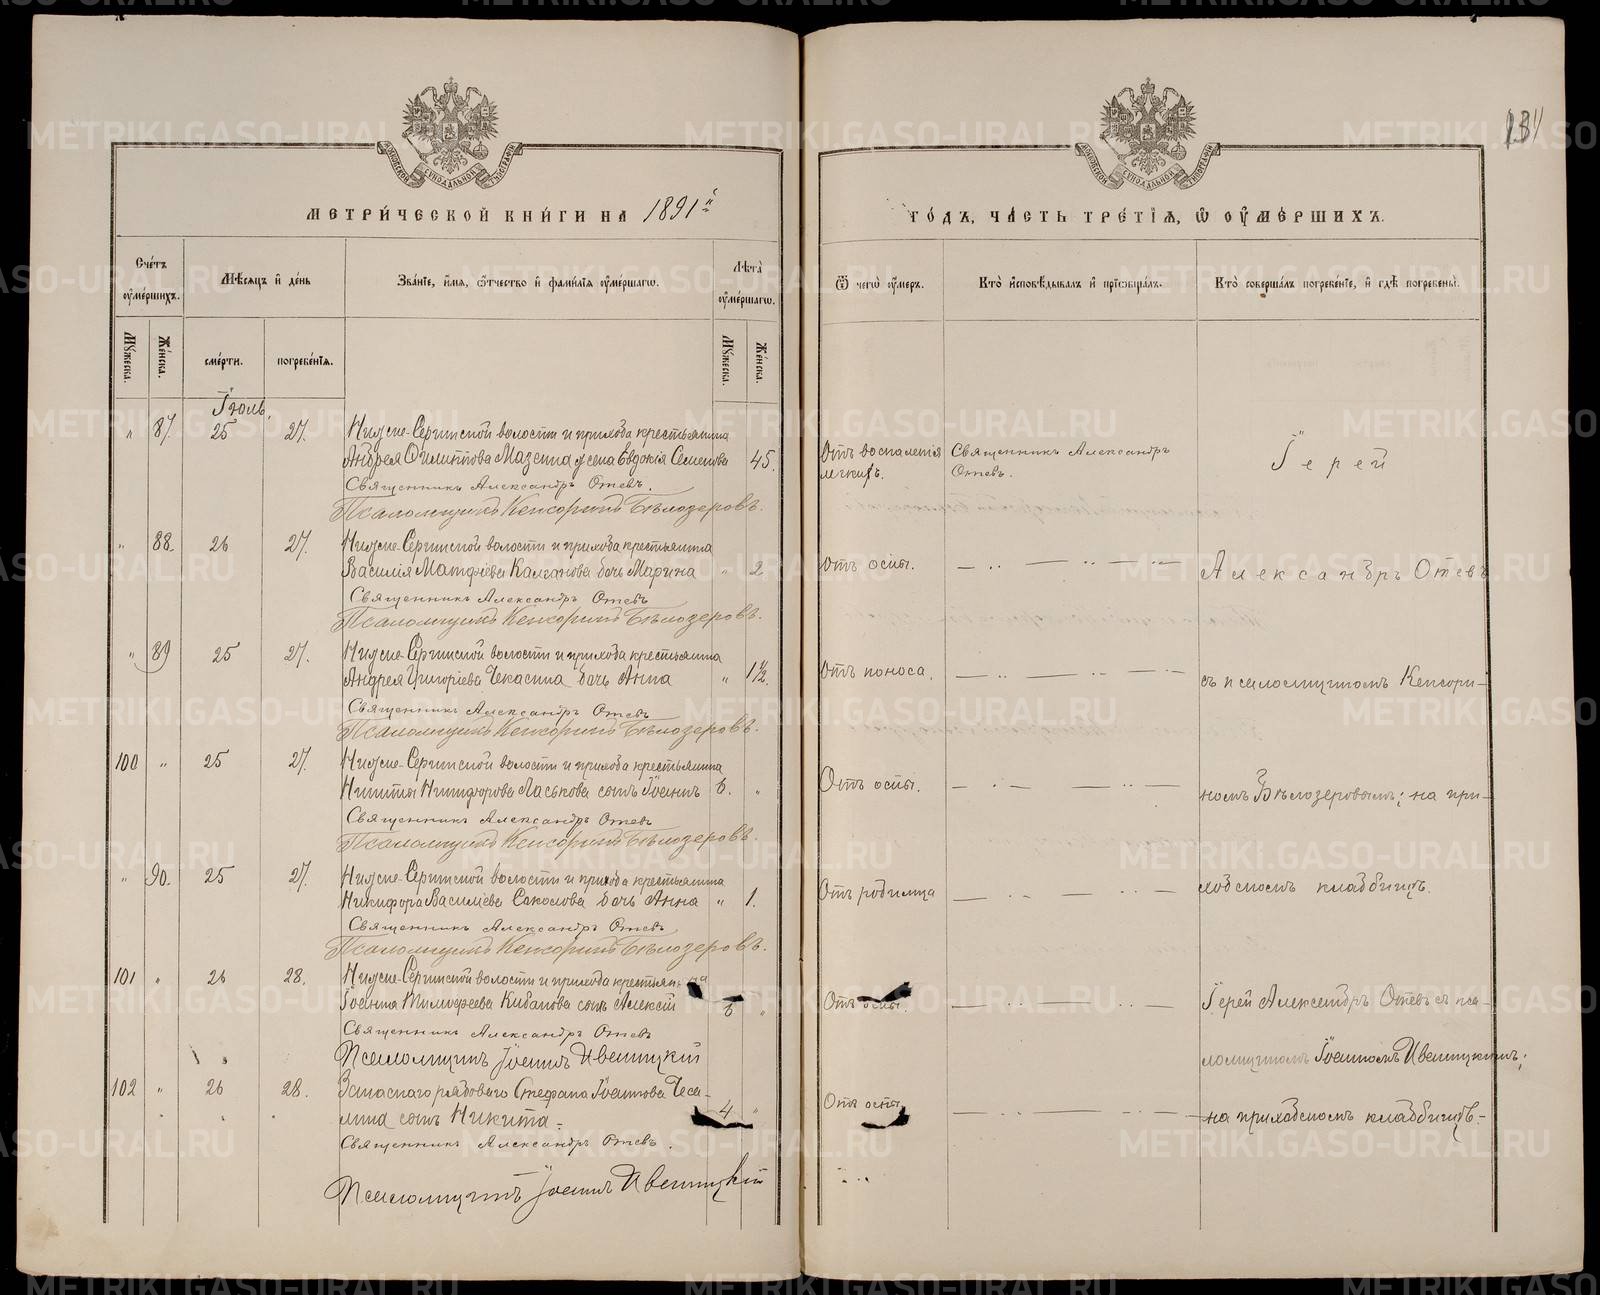 МЕТРИ́ЧЕСКОЙ КНИ́ГИ НА 1891й
Сче́тъ ᲂу҆ме́ршихъ.
Мѣ́сѧцъ и҆ де́нь
Зва́нїе, и҆́мѧ, ѻ҆́тчество и҆ фами́лїѧ ᲂу҆ме́ршагѡ.
Лѣ́та ᲂу҆ме́ршагѡ.
Мꙋ́жеска.
Же́нска.
сме́рти.
погребе́нїѧ.
Мꙋ́жеска.
Же́нска.
Іюль.
" 87. 25 27. Нижне-Сергинской волости и прихода крестьянина
Андрея Филиппова Мазеина жена Евдокія Семенова 45.
Священникъ Александръ Отевъ.
Псаломщикъ Кенсоринъ Бѣлозеровъ.
" 88. 26 27. Нижне-Сергинской волости и прихода крестьянина
Василія Матфіева дочь Марина " 2.
Священникъ Александръ Отевъ
Псаломщикъ Кенсоринъ Бѣлозеровъ.
" 89 25 27. Нижне-Сергинской волости и прихода крестьянина
Андрея Григоріева Чекасина дочь Анна " 1½.
Священникъ Александръ Отевъ
Псаломщикъ Кенсоринъ Бѣлозеровъ.
100 " 25 27. Нижне-Сергинской волости и прихода крестьянина
Никиты Никифорова Ласькова сынъ Іоаннъ 6. "
Священникъ Александръ Отевъ
Псаломщикъ Кенсоринъ Бѣлозеровъ.
" 90. 25 27. Нижне-Сергинской волости и прихода крестьянина
Никифора Василіева Соколова дочь Анна " 1.
Священникъ Александръ Отевъ
Псаломщикъ Кенсоринъ Бѣлозеровъ.
101 " 26 28. Нижне-Сергинской волости и прихода крестьянина
Іоанна Тимофеева Кибанова сынъ Алексій 6 "
Священникъ Александръ Отевъ
Псаломщикъ Іоаннъ Ивеницкій
102 " 26 28. Запаснаго рядоваго Стефана Іоаннова Чека-
лина сынъ Никита. 4 "
Священникъ Александръ Отевъ.
Псаломщикъ Іоаннъ Ивеницкій
231
ГО́ДЪ, ЧА́СТЬ ТРЕ́ТЇѦ, Ѡ҆ ОУ҆МЕ́РШИХЪ.
Ѿ чегѡ̀ ᲂу҆́меръ.
Кто̀ и҆сповѣ́дывалъ и҆ прїѡбща́лъ.
Кто̀ соверша́лъ погребе́нїе, и҆ гдѣ̀ погребены̀.
Отъ воспаленія Священникъ Александръ
легкихъ. Отевъ.
Іерей
Отъ оспы.
Александръ Отевъ
Отъ поноса.
съ псаломщикомъ Кенсори-
Отъ оспы.
номъ Бѣлозеровымъ; на при-
Отъ родимца
ходскомъ кладбищѣ.
Отъ оспы.
Іерей Александръ Отевъ съ пса-
ломщикомъ Іоанномъ Ивеницкимъ;
Отъ оспы
на приходскомъ кладбищѣ.-
METRIKI.GASO-URAL.RU